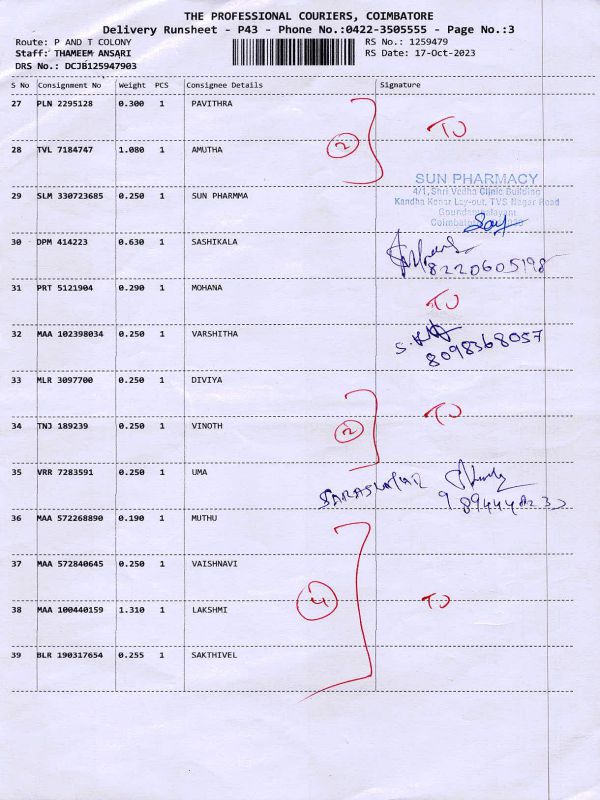 THE PROFESSIONAL COURIERS, COIMBATORE
Delivery Runsheet - P43 - Phone No.:0422-3505555 - Page No.:3
Route: P AND T COLONY RS No.: 1259479
Staff: THAMEEM ANSARI RS Date: 17-Oct-2023
DRS No.: DCJB125947903
S No Consignment No Weight PCS Consignee Details Signature
27 PLN 2295128 0.300 1 PAVITHRA
2 TO
28 TVL 7184747 1.080 1 AMUTHA
SUN PHARMACY
4/1, Shri Vedha Clinic Building
29 SLM 330723685 0.250 1 SUN PHARMMA
Kandha Konar Lay-out, TVS Nagar Road
30 DPM 414223 0.630 1 SASHIKALA
8220605198
31 PRT 5121904 0.290 1 MOHANA TO
32 MAA 102398034 0.250 1 VARSHITHA
8098368057
33 MLR 3097700 0.250 1 DIVIYA
2 TO
34 TNJ 189239 0.250 1 VINOTH
35 VRR 7283591 0.250 1 UMA
36 MAA 572268890 0.190 1 MUTHU
37 MAA 572840645 0.250 1 VAISHNAVI
4 TO
38 MAA 100440159 1.310 1 LAKSHMI
39 BLR 190317654 0.255 1 SAKTHIVEL